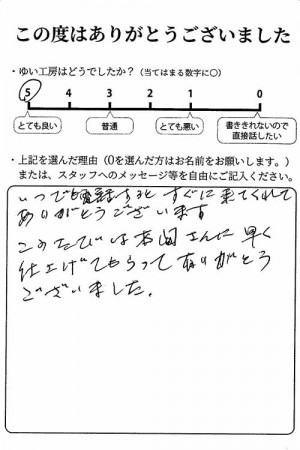 この度はありがとうございました
・ゆい工房はどうでしたか？（当てはまる数字に○）
5 4 3 2 1 0
とても良い 普通 とても悪い 書ききれないので直接話したい
・上記を選んだ理由（0を選んだ方はお名前をお願いします。）
または、スタッフへのメッセージ等を自由にご記入ください。
いつでも電話すると すぐに来てくれて
ありがとうございます
このたびは さんに 早く
仕上げてもらって ありがとう
ございました。